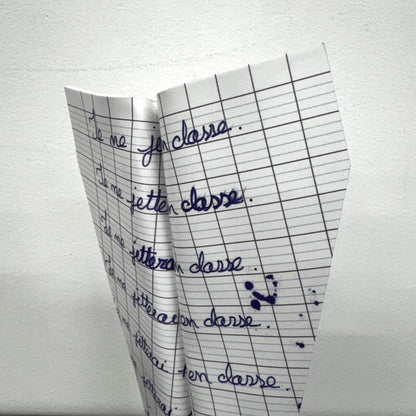 Je ne jen classe.
Je ne jetten classe.
Je ne jetteran classe.
Je ne jetteraien classe.
ne jetterai en classe.
jetterai